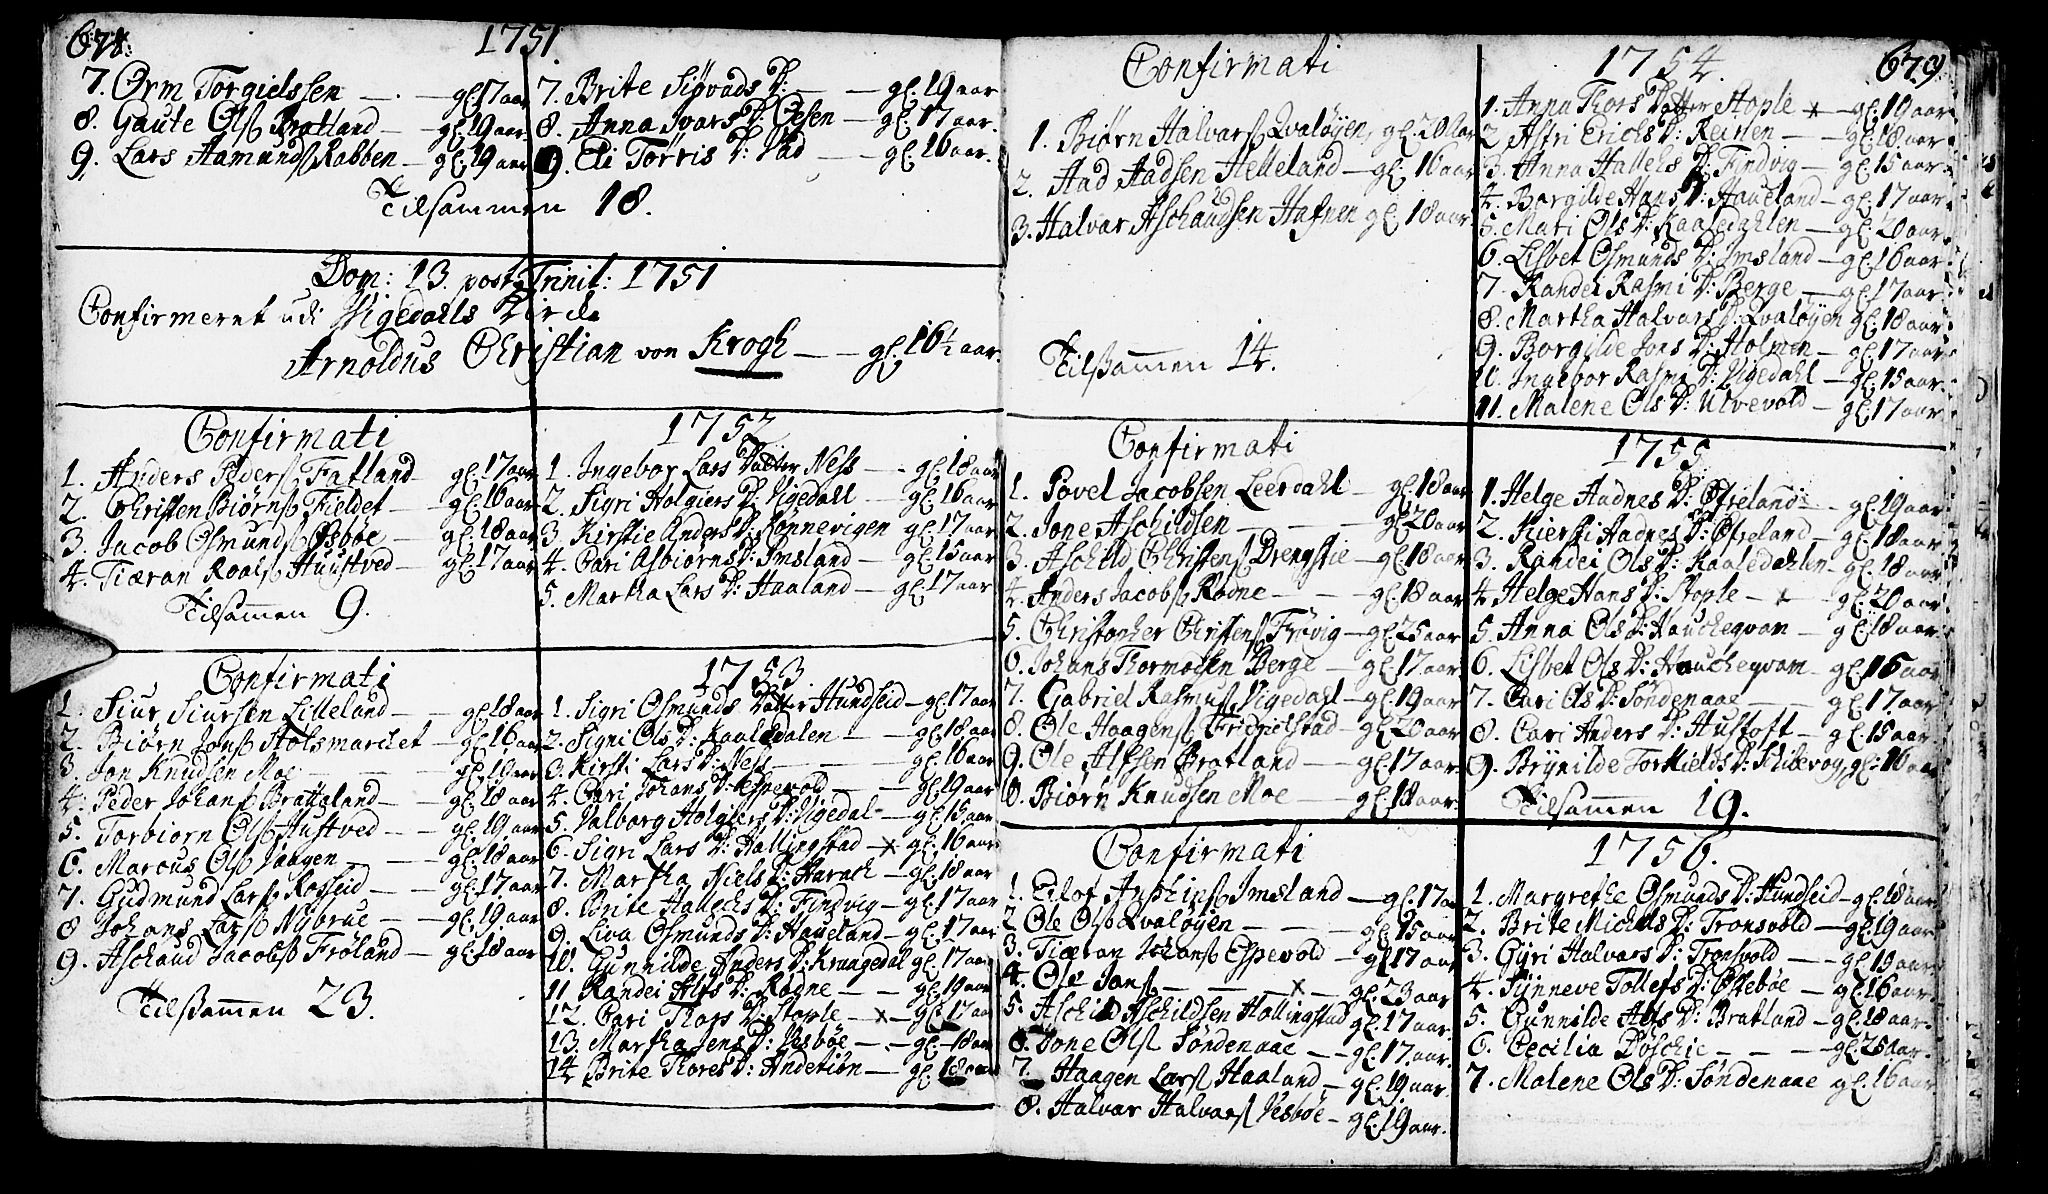 678.
1751.
7. Orm Torgielssen — . — gl. 17 aar
8. Gaute Ols. Bratland — gl. 19 aar
9. Lars Aamunds. Rabben — gl. 19 aar
7. Brite Sivads D: — — gl. 19 aar
8. Anna Ivars D: Oesen — gl. 17 aar.
9. Eli Torris D: Vad — gl. 16 aar.
Tilsammen 18.
Dom: 13. post Trinit: 1751
Confirmeret udi Vigedahls Kirke
Arnoldus Christian von Krogh — — gl. 16½ aar.
Confirmati 1752
1. Anders Peders. Fatland gl. 17 aar
2. Christen Biørns. Fieldet — gl. 16 aar
3. Jacob Osmunds. Øsbøe — gl. 18 aar
4. Tiæran Roals. Huustved — gl. 17 aar
Tilsamen 9.
1. Ingebor Lars Datter Ness — gl. 18 aar
2. Sigri Holgiers D: Vigedall — gl. 16 aar
3. Kirstie Anders D: Rønnevigen gl. 17 aar
4. Cari Asbiørns D: Imsland — gl. 15 aar
5. Martha Lars D: Haaland — gl. 17 aar
Confirmati 1753.
1. Siur Siursen Lilleland — gl. 18 aar
2. Biørn Jons. Holsmarchet — gl. 16 aar
3. Jon Knudsen Moe — — gl. 19 aar
4. Peder Johans. Bratteland — gl. 18 aar
5. Torbiorn Ols. Hustved — — gl. 19 aar
6. Marcus Ols. Vaagen — — gl. 18 aar
7. Gudmund Lars. Rosseid — — gl. 17 aar
8 Johans Lars. Nybrue — — gl. 19 aar
9. Aschaud Jacobs. Frøland — gl. 18 aar
Tilsamen 23.
1. Sigri Osmunds Datter Hundseid — gl. 17 aar
2. Signi Ols D: Kaaledalen — gl. 18 aar
3. Kirsti Lars D: Ness — — gl. 16 aar
4. Cari Johans D: Espevold — — gl. 19 aar
5. Valborg Holgiers D: Vigedal — gl. 15 aar
6. Sigri Lars D: Hallingstad — x — gl. 16 aar
7. Martha Niels D: Harach — gl. 18 aar
8. Brite Hallechs D: Findvig — gl. 17 aar
9. Liva Osmunds D: Haueland — gl. 17 aar
10. Gunnilde Anders D: Krungedal gl. 17 aar
11 Randei Alfs D: Rødne — — gl. 19 aar
12. Cari Thors D: Stople — x — gl. 17 aar
13 Martha Jens D: Vesbøe — . — gl. 18 aar
14 Brite Thores D: Andetiøn — gl. 18 aar
679.
Confirmati 1754.
1. Biørn Halvars. Qvaløyen, gl. 20 aar
2. Aad Aadsen Helleland — gl. 16 aar
3. Halvar Aschaudsen Hafnen gl. 18 aar.
Tilsammen 14.
1. Anna Thors Datter Stople x — gl. 19 aar
2 Astri Erichs D: Reirten — — gl. 18 aar
3. Anna Hallechs D: Findvig — gl. 15 aar
4. Borgilde Hans D: Haueland — gl. 17 aar
5. Mari Ols D: Kaaledahlen — gl. 20 aar.
6. Lisbet Osmunds D: Imsland — gl. 16 aar.
7. Randei Rasm: D: Berge — gl. 17 aar.
8. Martha Halvars D: Qvaløyen gl. 18 aar
9. Borgilde Jons D: Holmen — gl. 17 aar
10. Ingebor Rasm: D: Vigedahl — gl. 15 aar.
11. Malene Ols D: Ulvevold — gl. 17 aar
Confirmati 1755.
1. Povel Jacobsen Leerdahl — gl. 18 aar
2. Jone Aschildsen — — — gl. 20 aar
3. Aschild Christens. Drengstie — gl. 18 aar
4. Anders Jacobs. Rødne — — gl. 18 aar
5. Christopher Christens. Frøvig — gl. 25 aar
6. Johans Thormodsen Berge — gl. 17 aar.
7. Gabriel Rasmus. Vigedahl — gl. 19 aar
8. Ole Haagens. Fridrichstad — gl. 20 aar
9. Ole Alfsen Bratland — — gl. 17 aar
10. Biørn Knudsen Moe — — gl. 18 aar.
1. Helge Aadnes D: Østreland — gl. 19 aar.
2. Kiersti Aadnes D: Østreland — gl. 18 aar.
3. Randei Ols D: Kaaledahlen — gl. 18 aar.
4 Helge Hans D: Stople — x — gl. 20 aar
5. Anna Ols D: Haucheqvam — gl. 18 aar
6. Lisbet Ols D: Haucheqvam — gl. 16 aar
7. Cari Ols D: Søndenaae — — gl. 17 aar
8. Cari Anders D: Hustoft — gl. 15 aar.
9. Brynilde Torkields D: Skibevog, gl. 16 aar
Tilsamen 19.
Confirmati 1756.
1. Eilof Aschins. Imsland — gl. 17 aar
2 Ole Ols. Qvaløyen — — gl. 15 aar
3. Tiæran Johans. Espevold — gl. 17 aar
4. Ole Jons. — — x — gl. 23 aar
5. Aschild Aschildsen Hallingstad gl. 17 aar.
6. Jone Ols. Søndenaae — — gl. 17 aar.
7. Haagen Lars. Haaland — gl. 19 aar
8. Halvar Halvars. Vesbøe — gl. 19 aar.
1. Margrethe Osmunds D: Hundseid — gl. 18 aar
2. Brite Michels D: Tronsvold — gl. 19 aar
3. Gyri Halvars D: Tronsvold — — gl. 19 aar
4. Synneve Tollefs D: Østebøe — gl. 16 aar.
5. Gunnilde Alfs D: Bratland — gl. 18 aar.
6. Cecilia Poschie — — — gl. 25 aar.
7. Malene Ols D: Søndenaae gl. 16 aar